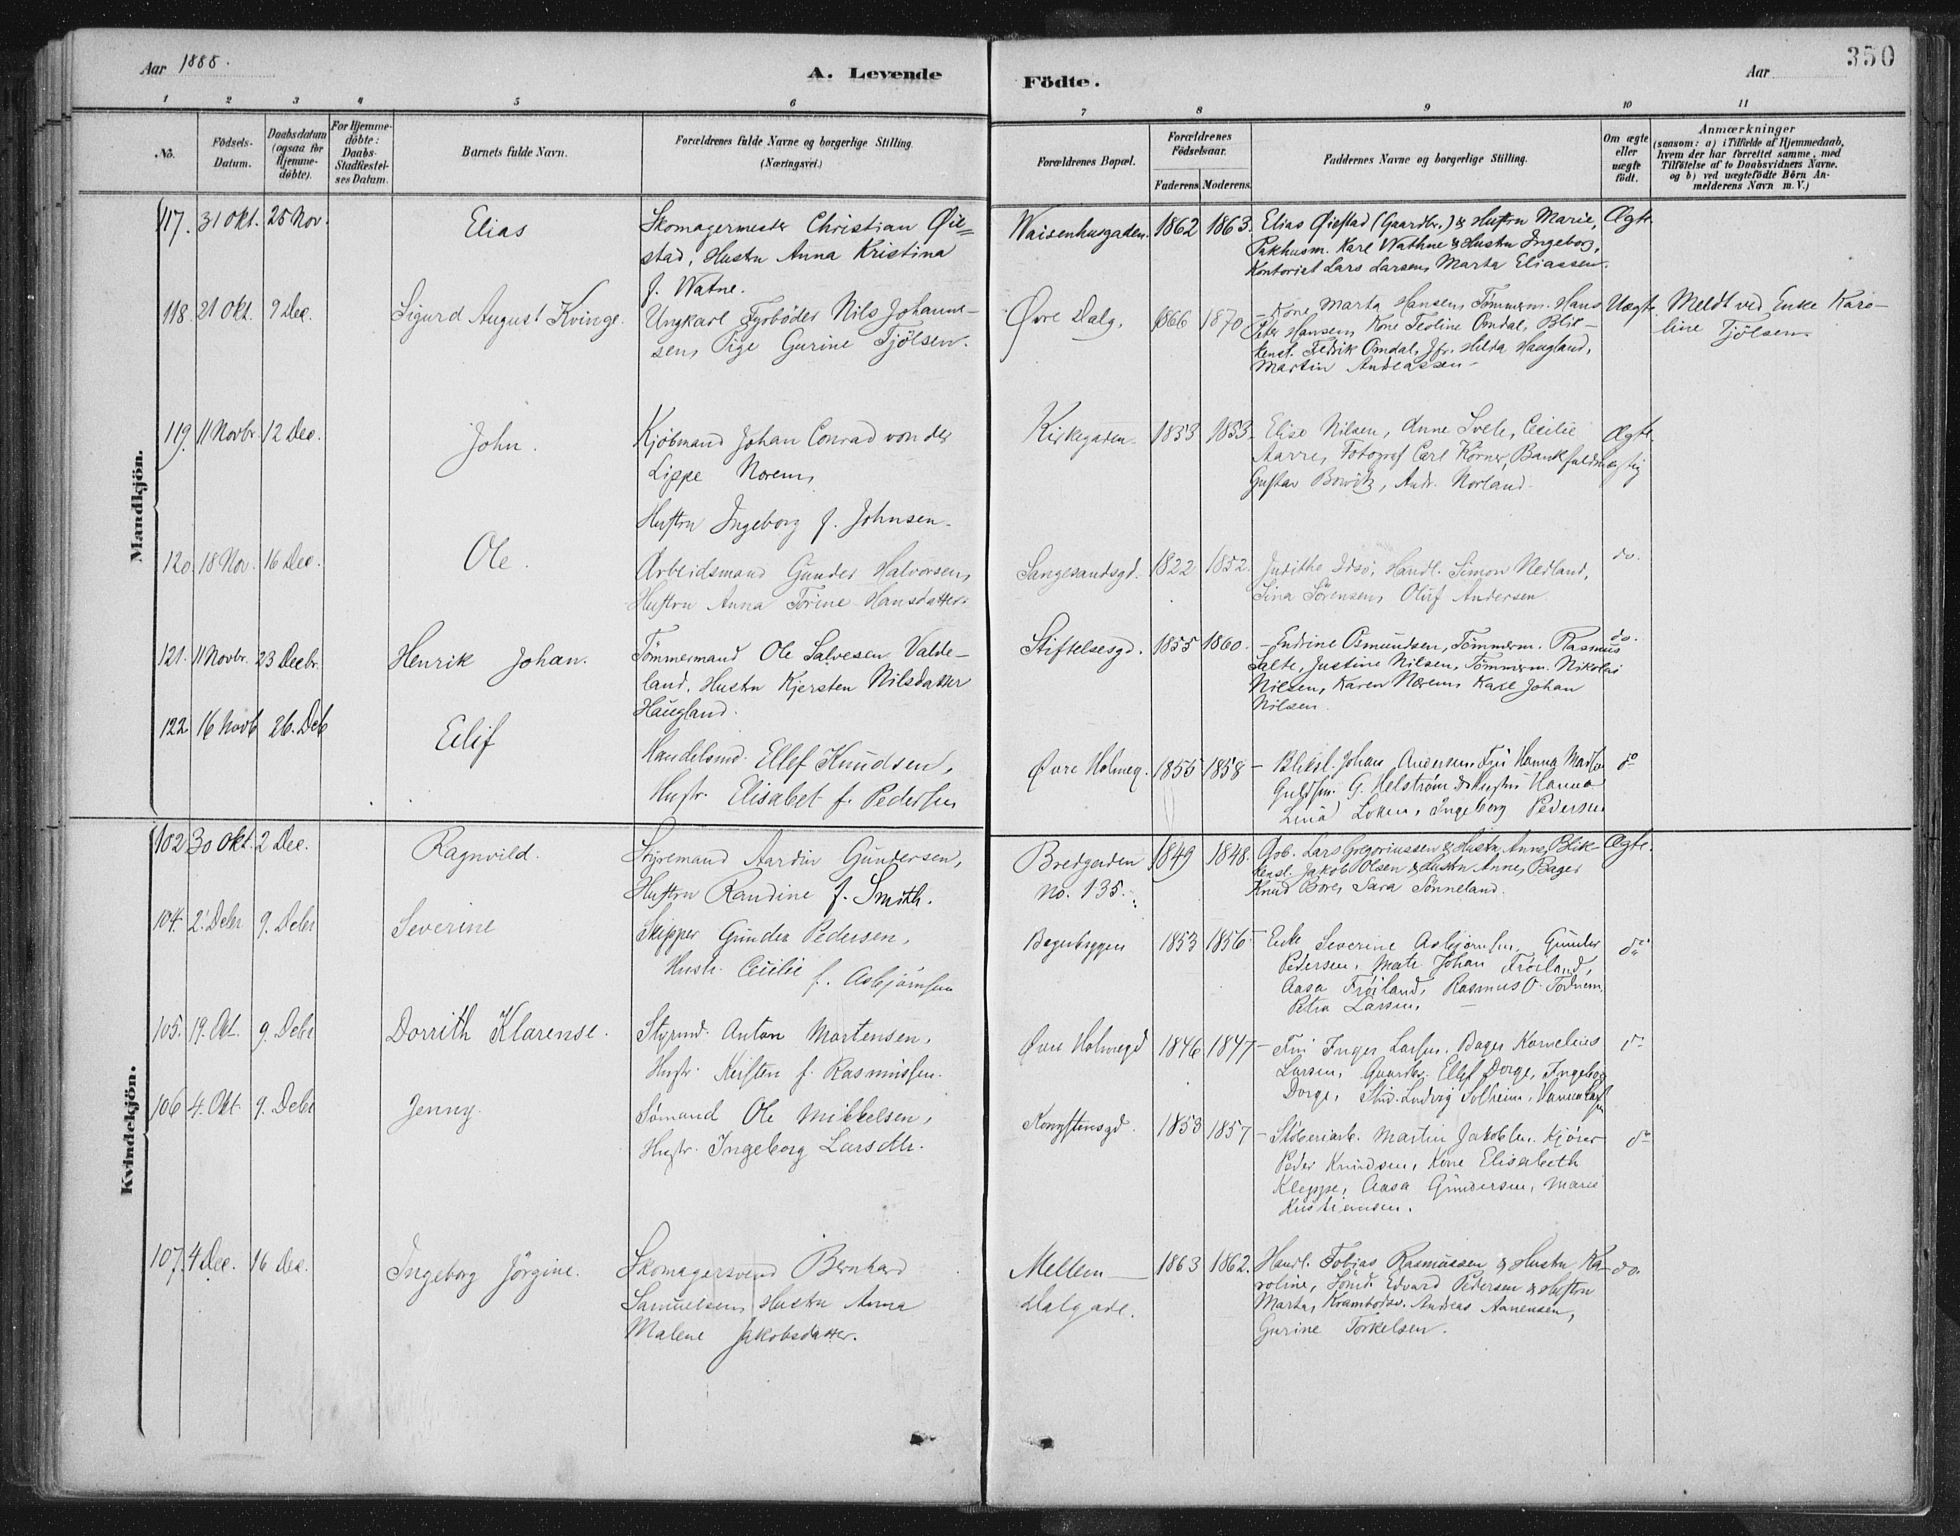 Aar 1888.
A. Levende
Födte.
Aar
350
1 2 3 4 5 6 7 8 9 10 11
No.
Födsels-
Datum.
Daabsdatum
(ogsaa for
Hjemme-
döbte).
For Hjemme-
döbte:
Daabs-
Stadfæstel-
ses Datum.
Barnets fulde Navn.
Forældrenes fulde Navne og borgerlige Stilling.
(Næringsvei.)
Forældrenes Bopæl.
Forældrenes
Födselsaar.
Faderens. Moderens.
Faddernes Navne og borgerlige Stilling.
Om ægte
eller
uægte
födt.
Anmærkninger
(saasom: a) i Tilfælde af Hjemmedaab,
hvem der har forrettet samme, med
Tilföielse af to Daabsvidners Navne,
og b) ved uægtefödte Börn An-
melderens Navn m. V.)
Mandkjön.
117. 31 Okt. 25 Nov. Elias
Skomagermester Christian Øie-
stad, Hustru Anna Kristina
f. Watne.
Waisenhusgaden. 1862 1863.
Elias Øiestad (Gaardbr.) & Hustru Marie,
Pakhusm. Karl Wathne & Hustru Ingeborg,
Kontorist Lars Larsen, Marta Eliassen.
Ægte
118. 21 Okt. 9 Dec. Sigurd August Kvinge.
Ungkarl Fyrbøder Nils Johanne-
sen, Pige Gurine Tjölsen.
Øvre Dalg. 1866 1870
Kone Marta Hansen, Tömmerm. Hans
Peter Hansen, Kone Teoline Omdal, Blik-
kensl. Fedrik Omdal, Jfr. Hilda Haugland,
Martin Andreassen
Uægte
Meldt ved Enke Karo-
line Tjölsen.
119. 11 Novbr. 12 Dec. John.
Kjöbmand Johan Conrad von der
Lippe Norem,
Hustru Ingeborg f. Johnsen.
Kirkegaden. 1853 1853.
Elise Nilsen, Anne Svele, Cecilie
Aarre, Fotograf Carl Körner, Bankfuldmægtig
Gustav Andr. Norland.
Ægte.
120. 18 Nov. 16 Dec. Ole.
Arbeidsmand Gunder Halvorsen,
Hustru Anna Torine Hansdatter.
Sangesandsgd. 1822 1852.
Juditha Idsö, Handl. Simon Nedland,
Sina Sörensen, Oluf Andersen.
do.
121. 11 Novbr. 23 Decbr. Henrik Johan.
Tömmermand Ole Salvesen Valde-
land, Hustru Kjersten Nilsdatter
Haugland.
Stiftelsesgd. 1855 1860.
Endrine Osmundsen, Tömmerm. Rasmus
Salte, Justine Nilsen, Tömmerm. Nikolai
Nilsen, Karen Nærem, Karl Johan
Nilsen.
do.
122 16 Novb 26. Deb Eilif
Handelsmd. Ellef Knudsen,
Hustr. Elisabet f. Pedersen
Øvre Holmeg. 1855 1858
Bliksl. Johan Andersen, Frü Hanna
Guldsm. G. Helström & Hustru Hanna
Lina Ingeborg Pedersen
do
Kvindekjön.
102 30 Okt. 2 Dec. Ragnvild.
Styremand Aardin Gundersen,
Hustru Randine f. Smith.
Bredgaden
No. 135.
1849 1848.
Arb. Lars Gregoriussen & Hustru Anne, Blik-
kensl. Jakob Olsen & Hustru Anne, Bager
Knud Bore, Sara Sönneland.
Ægte.
104. 2. Debr 9. Debr Severine
Skipper Gunder Pedersen,
Hustr. Cecilie
f. Asbjörnsen
1853 1856
Enke Severine Asbjörnsen, Gunder
Pedersen, Johan Fröiland,
Aasa Fröiland, Rasmus O. Fodnem
Petra Larsen.
do
105. 19. Okt 9. Debr Dorrith Klarense.
Styrmd. Anton Mortensen,
Hustr. Kirsten f. Rasmussen.
Øvre Holmegd 1846 1847
Frü Inger Larsen, Bager Kornelius
Larsen, Gaardbr. Ellef Dorge, Ingeborg
Dorge, Stud. Ludvig Solheim,
do
106 4. Okt 9. Debr Jenny.
Sömand Ole Mikkelsen,
Hustr. Ingeborg Larsdtr.
1853 1857
Martin Jakobsen,
Peder Knudsen, Kone Elisabeth
Kleppe, Aasa Gundersen, Maria
Kristiansen.
do
107. 4 Dec. 16 Dec. Ingeborg Jörgine.
Skomagersvend Bernhard
Samuelsen, Hustru Anna
Malene Jakobsdatter.
Mellem
Dalgade.
1863 1862.
Handl. Tobias Rasmussen & Hustru Ka-
roline, Edvard Pedersen & Hustru
Marta, Krambodsv. Andreas Aanensen,
Gurine Torkelsen.
do.